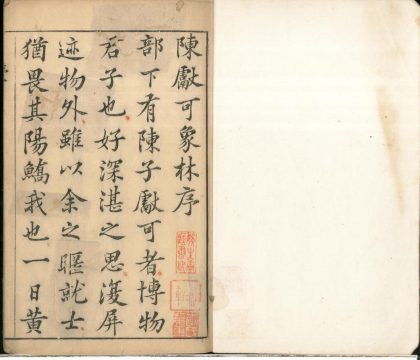 陳獻可象林序
部下有陳子獻可者博物
君子也好深湛之思復屏
迹物外雖以余之暱就士
猶畏其陽鱎我也一日黃